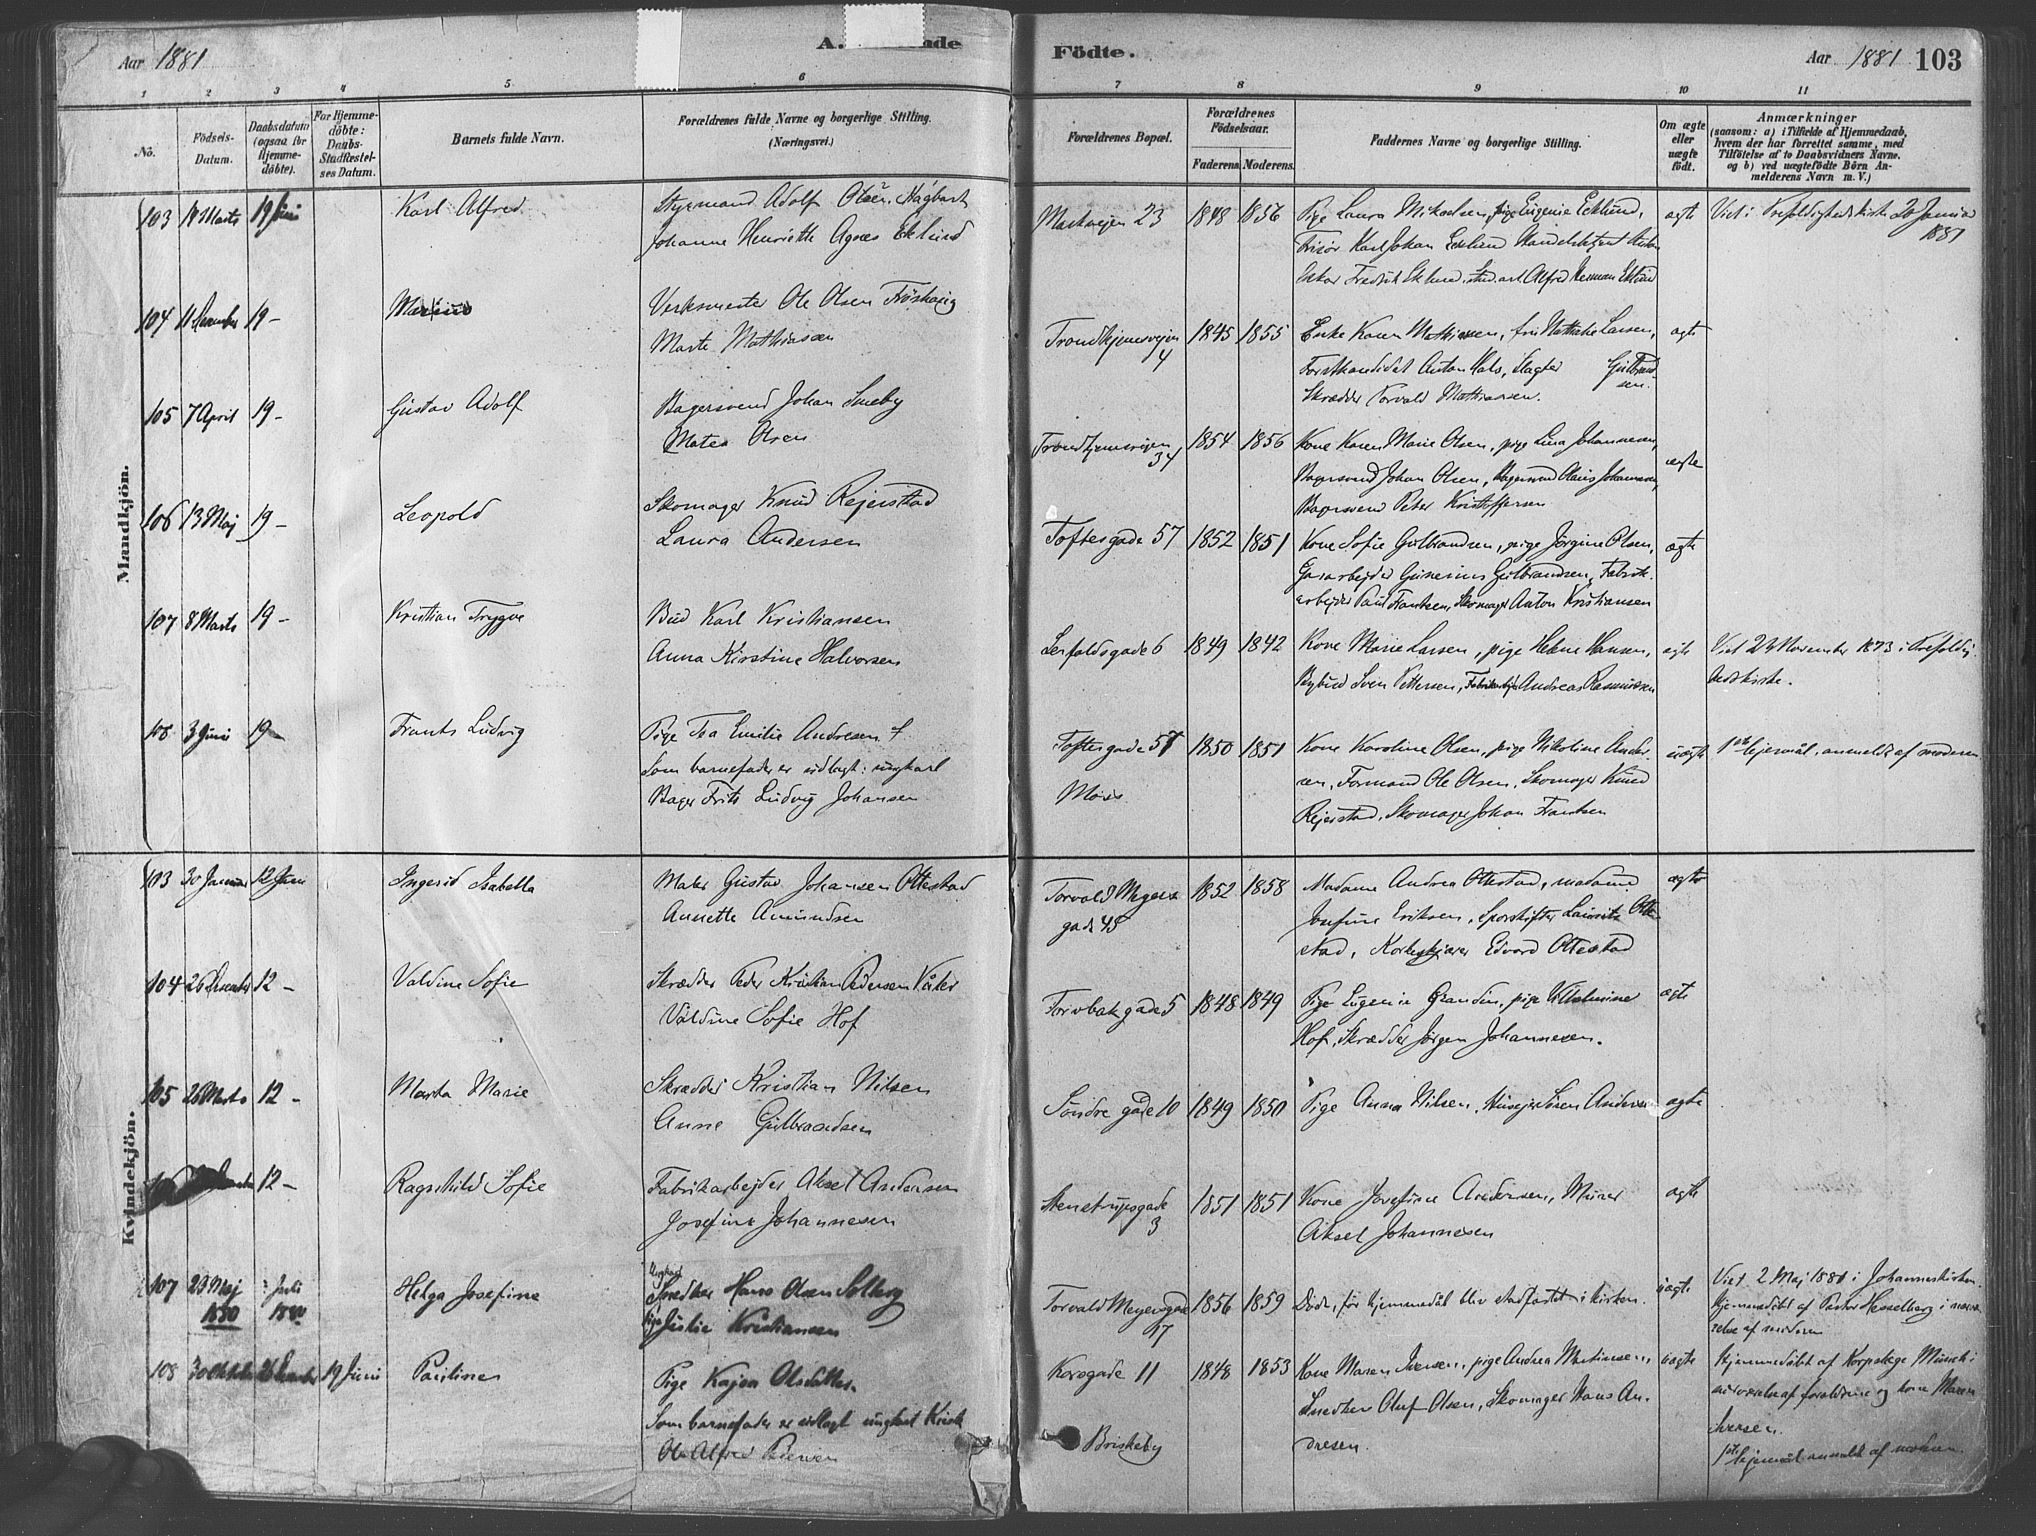 Aar 1881
A. 
Födte.
Aar 1881 103
1 2 3 4 5 6 7 8 9 10 11
No.
Födsels-
Datum.
Daabsdatum
(ogsaa for
Hjemme-
döbte).
For Hjemme-
döbte:
Daabs-
Stadfæstel-
ses Datum.
Barnets fulde Navn.
Forældrenes fulde Navne og borgerlige Stilling.
(Næringsvei.)
Forældrenes Bopæl.
Forældrenes
Födselsaar.
Faderens. Moderens.
Faddernes Navne og borgerlige Stilling.
Om ægte
eller
uægte
födt.
Anmærkninger
(saasom: a) i Tilfælde af Hjemmedaab,
hvem der har forrettet samme, med
Tilföielse af to Daabsvidners Navne.
og b) ved uægtefödte Börn An-
melderens Navn m. V.)
Mandkjön.
103 Marts 19 Juni
Karl Alfred
Styrmand Adolf Olsen Hagbart
Johanne Henriette Agnes Eklund
Markvejen 23
1848 1856
Pige Laura Mikaelsen, pige Eugenie Eklund,
Frisör Karl Johan Eklund
Oskar Fredrik Eklund, stud. art. Alfred Herman Eklund
ægte
Viet i Trefoldighedskirke 20 Januar
1881
104 11 December 19 –
Verksmester Ole Olsen
Marte Mathiesen
Trondhjemsvejen
4
1845 1855
Enke Karen Mathiesen, frk Mathilde Larsen,
Forstkandidat Anton Hals, Slagter Gulbrand-
sen.
Skrædder Torvald Mathiesen.
ægte
105 7 April 19 –
Gustav Adolf
Bagersvend Johan Smeby
Matea Olsen
Trondhjemsvejen
34
1854 1856
Kone Karen Marie Olsen, pige Lina Johannesen,
Bagersvend Johan Olsen, Bagersvend Olaus Johannesen,
Bagersvend Peter Kristoffersen
ægte
106 13 Maj 19 –
Leopold
Skomager Knud Rejerstad
Laura Andersen
Toftesgade 57
1852 1851
Kone Sofie Gulbrandsen, pige Jörgine Olsen,
Garvarbejder Gunerius Gulbrandsen, Fabrik-
arbejder Paul Frantsen, Skomager Anton Kristiansen
ægte
107 8 Marts 19 –
Kristian Trygve
Bud Karl Kristiansen
Anna Kirstine Halvorsen
Leirfaldsgade 6
1849 1842
Kone Marie Larsen, pige Helene Hansen,
Bybud Sven Pettersen, Fabrikarbejd Andreas Rasmussen
ægte
Viet 24 November 1873 i Trefoldig-
hedskirke.
108 3 Juni 19 –
Frants Ludvig
Pige Ina Emilie Andresen +
Som barnefader er udlagt: ungkarl
Bager Frits Ludvig Johansen
Toftesgade 57
Moss
1850 1851
Kone Karoline Olsen, pige Nikoline Ander-
sen, Formand Ole Olsen, Skomager Knud
Rejerstad, Skomager Johan Frantsen
uægte
1ste lejermål, anmeldt af moderen
Kvindekjön.
103 30 Januar 12 Juni
Ingerid Isabella
Maler Gustav Johansen Ottestad
Annette Amundsen
Torvald Meyers
gade 45
1852 1858
Madame Andrea Ottestad, madame
Josefine Eriksen, Sporskifter Laurits Otte-
stad, Korkeskjærer Edvard Ottestad
ægte
104 26 December 12 –
Valdine Sofie
Skrædder Peder Kristian Pedersen
Valdine Sofie Hof
Tornbakgade 5
1848 1849
Pige Eugenie Grandin, pige Vilhelmine
Hof, Skrædder Jörgen Johannesen.
ægte
105 26 Marts 12 –
Marta Marie
Skrædder Kristian Nilsen
Anne Gulbrandsen
Söndre gade 10
1849 1850
Pige Anna Nilsen, Husejer Sören Andersen
ægte
106 12 –
Ragnhild Sofie
Fabrikarbejder Aksel Andersen
Josefine Johannesen
Stenstrupsgade
3
1851 1851
Kone Josefine Andersen, Murer
Aksel Johannesen
ægte
107 23 Maj
1880
Juli
1880
Helga Josefine
Ungkarl
Snedker Hans Olsen Solberg
Pige Julie Kristiansen
Torvald Meyersgade
17
1856 1859
Döde, för hjemmedåb blev stadfæstet i kirken.
uægte
Viet 2 Maj 1881 i Johanneskirken.
Hjemmedöbt af Pastor Hesselberg i nærvæ-
relse af moderen
108 30 Oktober 26 December 19 Juni
Pauline
Pige Kajsa Olsdatter.
Som barnefader er udlagt ungkarl Kusk
Ole Alfred Pedersen
Korsgade 11
Briskeby
1848 1853
Kone Maren Iversen, pige Andrea Martinsen,
Snedker Oluf Olsen, Skomager Hans An-
dresen.
uægte
Hjemmedöbt af Korpslæge Munch i
nærværelse af forældrene og kone Maren
Iversen.
1ste lejermål anmeldt af moderen.